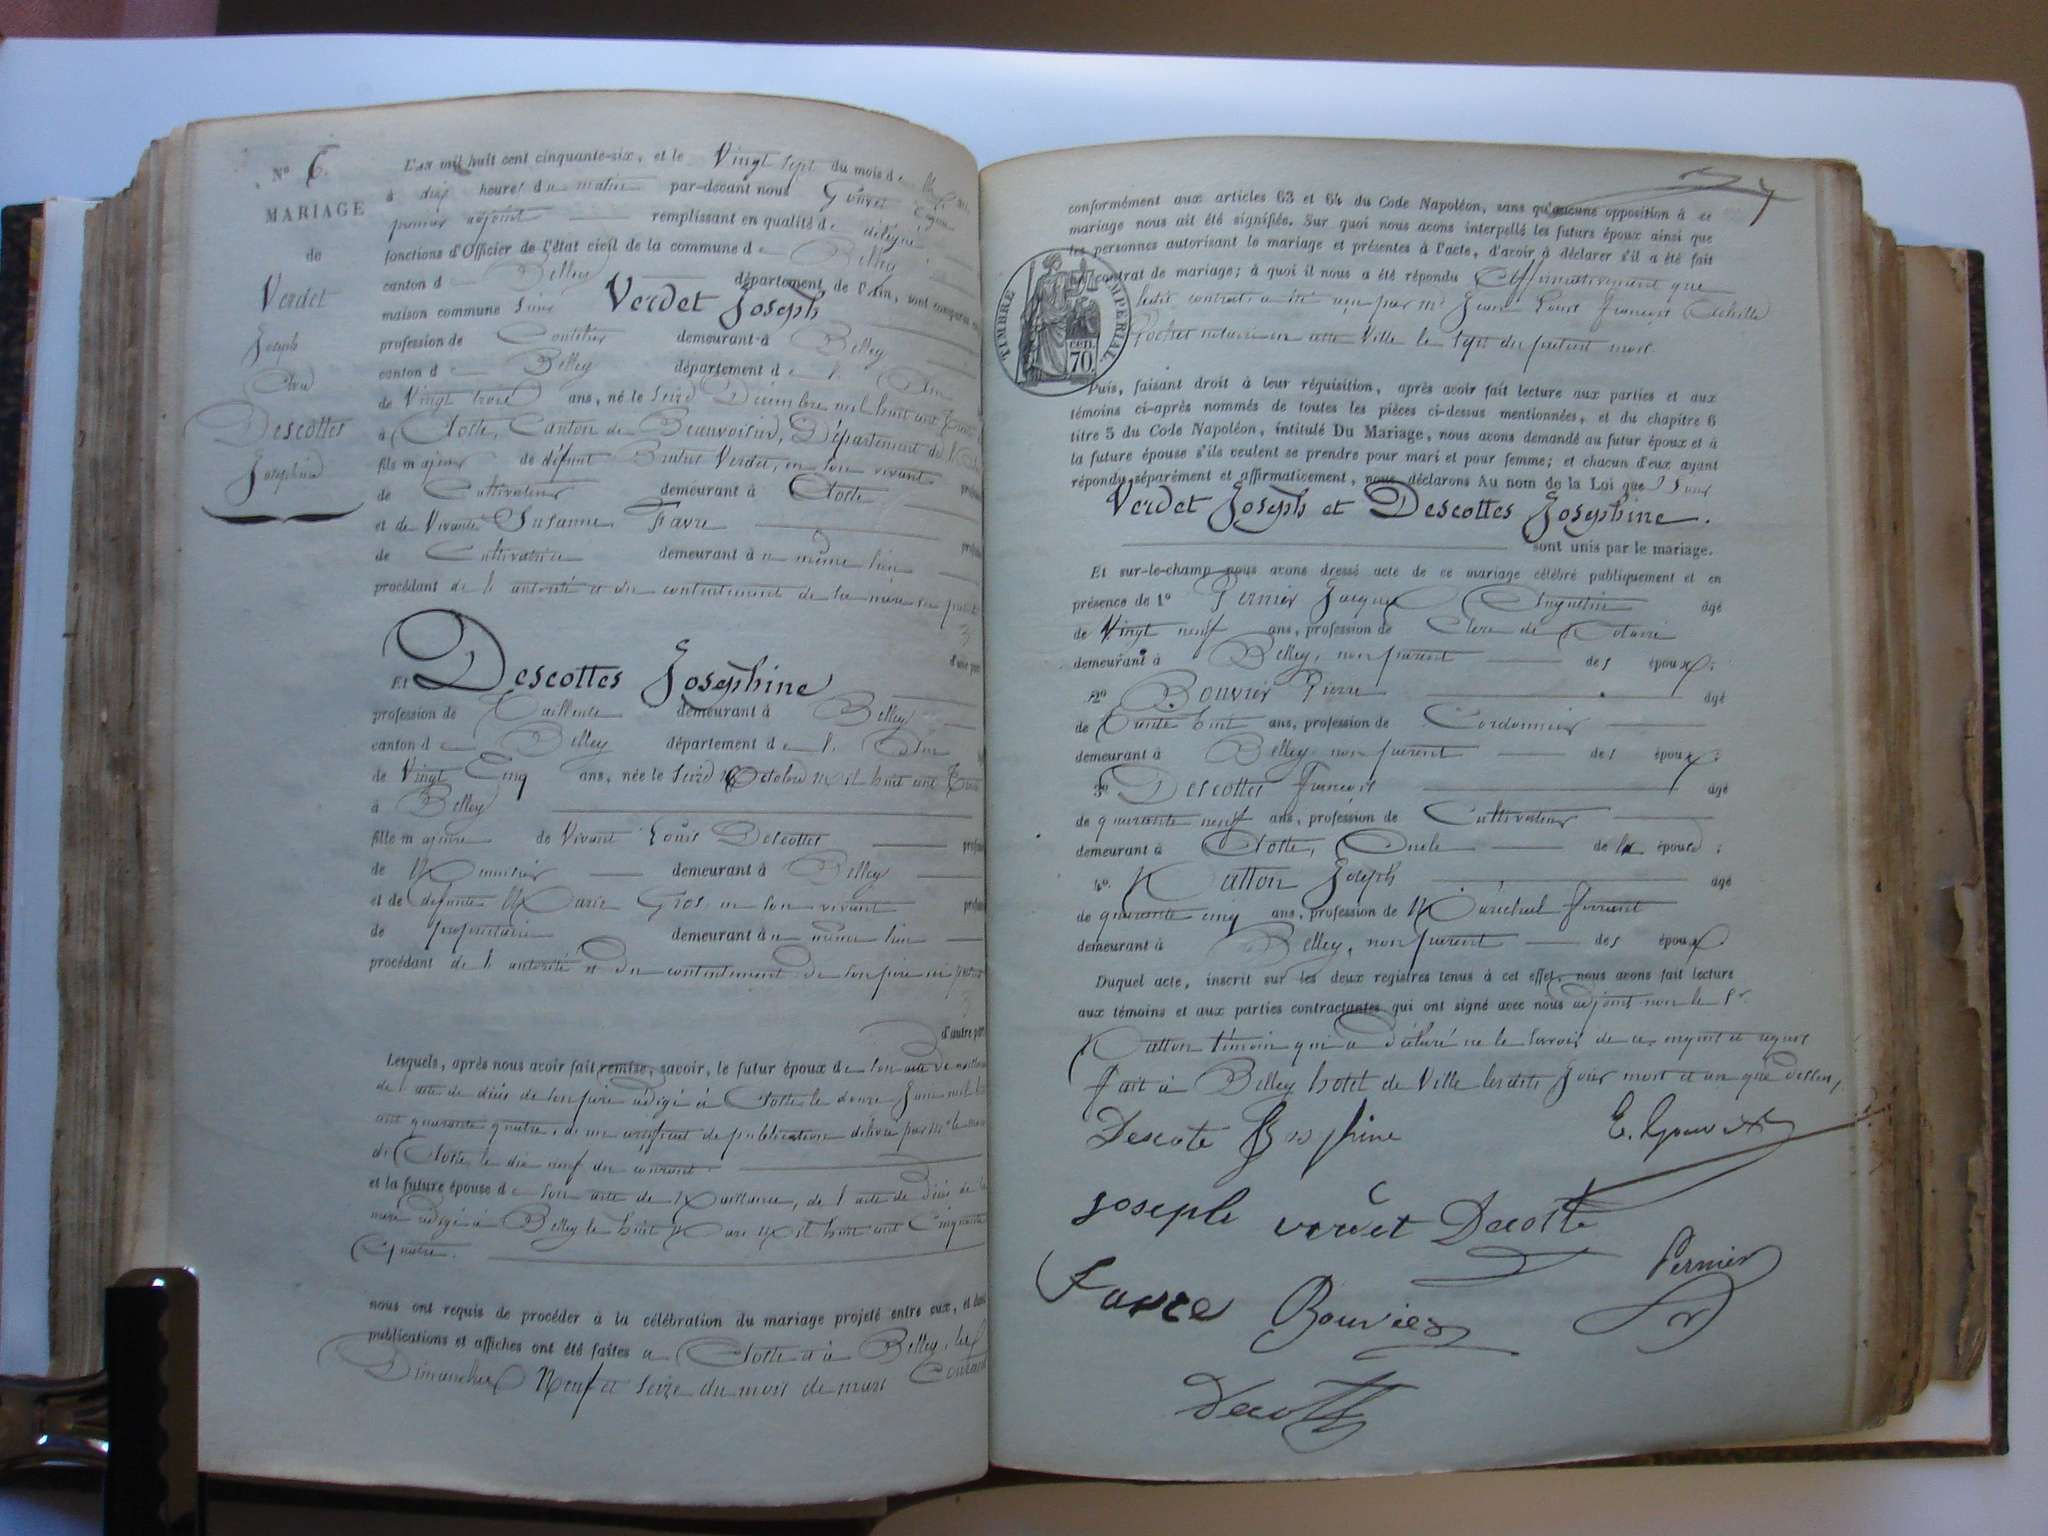 N° 6.
MARIAGE
de
Verdet
Joseph
Et
Descottes
Joséphine
L'an mil huit cent cinquante-six, et le Vingt sept du mois de Mars
à dix heures du matin par-devant nous Gouvet
premier adjoint remplissant en qualité de délégué
fonctions d'Officier de l'état civil de la commune de Belley
canton de Belley département de l'Ain, sont comparus en
maison commune Sieur Verdet Joseph
profession de Coutelier demeurant à Belley
canton de Belley département de l'Ain
de Vingt trois ans, né le Seize Décembre mil huit cent
à Aoste, Canton de Beauvoisin, Département de l'
fils majeur de défunt Brutus Verdet, en son vivant
de Cultivateur demeurant à Aoste
et de Vivante Susanne Favre
de Cultivatrice demeurant à u même lieu
procédant de l'autorité et du consentement de sa mère ici
d'une part
Et Descottes Josephine
profession de Tailleuse demeurant à Belley
canton de Belley département de l'Ain
de Vingt Cinq ans, née le Seize Octobre Mil huit cent
à Belley
fille majeure de Vivant Louis Descottes
de Menuisier demeurant à Belley
et de défunte Marie Gros en son vivant
de propriétaire demeurant à u même lieu
procédant de l'autorité et du consentement de son père ici
d'autre part
Lesquels, après nous avoir fait remise, savoir, le futur époux de son acte de
de l'acte de décès de son père rédigé à Aoste le douze Juin mil
cent quarante quatre, d'un certificat de publication délivré par Mr le maire
d'Aoste le dix neuf du courant.
et la future épouse de son acte de Naissance, de l'acte de décès de sa
mère rédigé à Belley le huit Mars Mil huit cent Cinquante
Quatre.
nous ont requis de procéder à la célébration du mariage projeté entre eux, et dont
publications et affiches ont été faites à Aoste et à Belley, les
Dimanches Neuf et Seize du mois de mars Courant
conformément aux articles 63 et 64 du Code Napoléon, sans qu'aucune opposition à ce
mariage nous ait été signifiée. Sur quoi nous avons interpellé les futurs époux ainsi que
les personnes autorisant le mariage et présentes à l'acte, d'avoir à déclarer s'il a été fait
contrat de mariage; à quoi il nous a été répondu Affirmativement que
ledit contrat a été reçu par Me Jean Louis François Achille
Rochet notaire en cette Ville le sept du présent mois.
TIMBRE IMPERIAL
70 cen.
Puis, faisant droit à leur réquisition, après avoir fait lecture aux parties et aux
témoins ci-après nommés de toutes les pièces ci-dessus mentionnées, et du chapitre 6
titre 5 du Code Napoléon, intitulé Du Mariage, nous avons demandé au futur époux et à
la future épouse s'ils veulent se prendre pour mari et pour femme; et chacun d'eux ayant
répondu séparément et affirmativement, nous déclarons Au nom de la Loi que Sieur
Verdet Joseph et Descottes Josephine.
sont unis par le mariage.
Et sur-le-champ nous avons dressé acte de ce mariage célébré publiquement et en
présence de 1° Pernier Jacques Augustin âgé
de Vingt neuf ans, profession de Clerc de Notaire
demeurant à Belley, non parent des époux;
2° Bouvier Pierre âgé
de Trente huit ans, profession de Cordonnier
demeurant à Belley non parent des époux;
3° Descottes François âgé
de quarante neuf ans, profession de Cultivateur
demeurant à Aoste, Oncle de la épouse;
4° Natton Joseph âgé
de quarante cinq ans, profession de Maréchal ferrant
demeurant à Belley, non parent des époux
Duquel acte, inscrit sur les deux registres tenus à cet effet, nous avons fait lecture
aux témoins et aux parties contractantes qui ont signé avec nous adjoint non le Sr
Natton témoin qui a déclaré ne le savoir de ce enquis et requis
fait à Belley hôtel de Ville lesdits Jour mois et an que dessus,
Descote Josphine E. Gouvet
Joseph verdet Decoste
Favre Bouvier Pernier